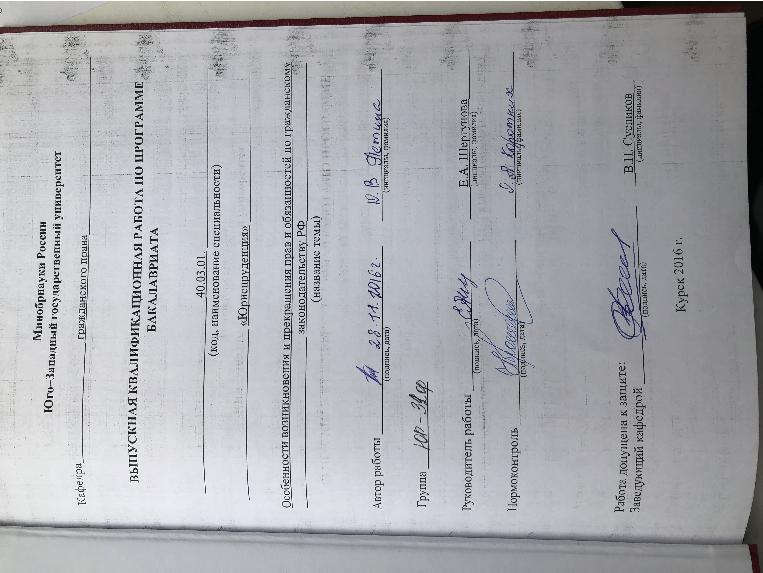 Минобрнауки России
Юго–Западный государственный университет
Кафедра гражданского права
ВЫПУСКНАЯ КВАЛИФИКАЦИОННАЯ РАБОТА ПО ПРОГРАММЕ
БАКАЛАВРИАТА
40.03.01.
(код, наименование специальности)
«Юриспруденция»
Особенности возникновения и прекращения прав и обязанностей по гражданскому
законодательству РФ
(название темы)
Автор работы 28.11.2016г. В
(подпись, дата) (инициалы, фамилия)
Группа
Руководитель работы Е.А. Шергунова
(подпись, дата) (инициалы, фамилия)
Нормоконтроль Коротких
(подпись, дата) (инициалы, фамилия)
Работа допущена к защите:
Заведующий кафедрой В.Н. Сусликов
(подпись, дата) (инициалы, фамилия)
Курск 2016 г.